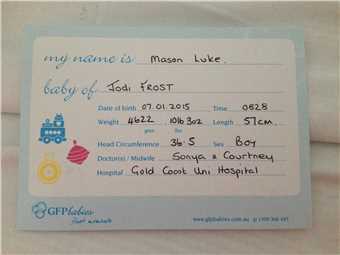 my name is Mason Luke.
baby of Jodi FROST
Date of birth 07.01.2015 Time 0828
Weight 4622 10lb 3oz Length 57cm.
gms lbs
Head Circumference 36.5 Sex Boy
Doctor(s) / Midwife Sonya & Courtney
Hospital Gold Coast Uni Hospital
GFPbabies
www.gfpbabies.com.au